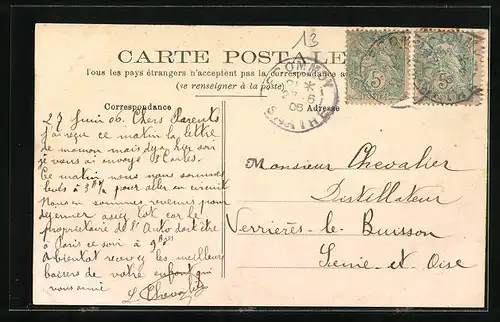 13
CARTE POSTALE
Tous les pays étrangers n'acceptent pas la correspondance au
(se renseigner à la poste)
Correspondance
Adresse
27 Juin 06. Chers Parents
J'ai reçu ce matin la lettre
de maman mais déjà hier soir
je vous ai envoyé Cartes.
Ce matin nous nous sommes
levés à 3 H ½ pour aller au circuit
Nous en sommes revenus pour
déjeuner assez tôt car le
propriétaire de l'Auto doit être
à Paris ce soir à 9 Hres
A bientôt recevez les meilleurs
baisers de votre enfant qui
vous aime
L. Chevalier
Monsieur Chevalier
Distillateur
Verrières-le-Buisson
Seine-et-Oise
5
5
06